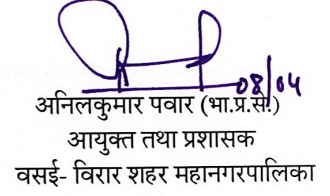 08/04
अनिलकुमार पवार (भा.प्र.से.)
आयुक्त तथा प्रशासक
वसई- विरार शहर महानगरपालिका